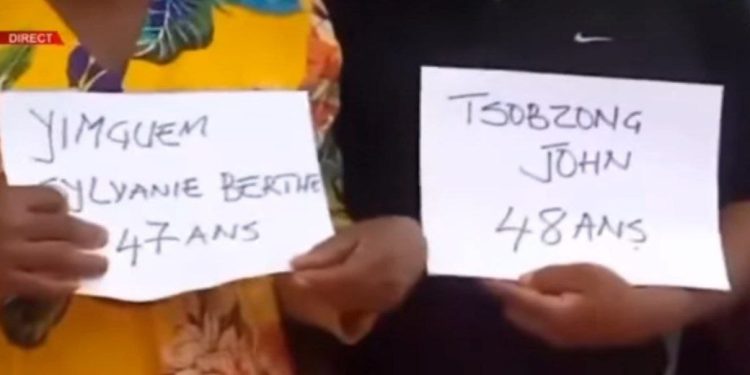 DIRECT
YIMGUEM
SYLVANIE BERTHE
47 ANS
TSOBZONG
JOHN
48 ANS